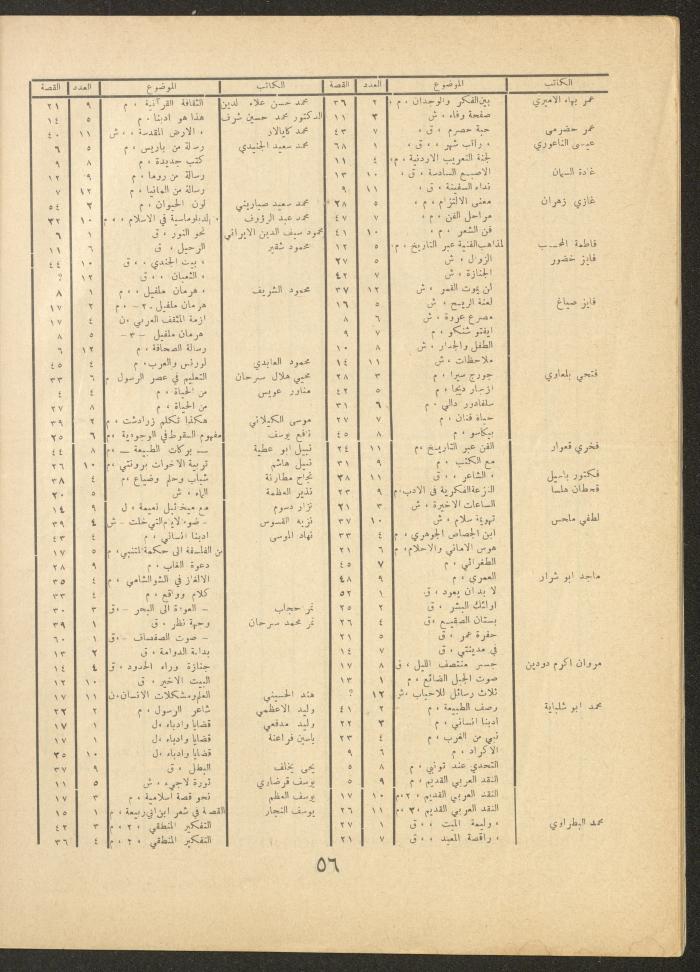 الكاتب الموضوع العدد القصة
عمر بهاء الاميري بين الفكر والوجدان ، م ، ٢ ٣٦
صفحة وفاء ، ش ٣ ١١
عمر حضرمي حبة حصرم ، ق ، ٧ ٤٣
عيسى الناعوري ، راتب شهر ، ، ق ، ١ ٦٨
لجنة التعريب الاردنية ، م ، ٤ ١١
غادة السمان الاصبع السادسة ، ق ، ١٠ ١٣
نداء السفينة ، ق ، ١١ ٩
غازي زهران معنى الالتزام ، م ، ٥ ٢٨
مراحل الفن ، م ، ٧ ٤٧
فن الشعر ، م ، ١٠ ٤١
فاطمة المحسب المذاهب الفنية عبر التاريخ ، م ٥ ١٢
فايز خضور الزوال ، ش ٥ ٢٧
الجنازة ، ش ٧ ٤٢
لن يموت القمر ، ش ١٢ ٣٧
فايز صياغ لعنة الريح ، ش ٥ ١٦
مصرع عروة ، ش ٦ ٨
ايفتو شنكو ، م ٧ ٩
الطفل والجدار ، ش ٨ ١٠
ملاحظات ، ش ١١ ١٤
فتحي بلعاوي جورج سيرا ، م ٣ ٢٨
ازسار ديجا ، م ٥ ٤٢
سلفادور دالي ، م ٦ ٣١
حياة فنان ، م ٧ ٢٧
بيكاسو ، م ٨ ٤٥
فخري قعوار الفن عبر التاريخ ، م ١١ ٢٤
مع الكتب ، م ٩ ٣١
فكتور باسيل ، الشاعر ، ، ق ١١ ٣٨
قحطان هلسا النزعة الفكرية في الادب ، م ٩ ٢٣
الساعات الاخيرة ، ش ٣ ٢١
لطفي ملحس تهويمة سلام ، ش ١٠ ٣٧
ابن الجصاص الجوهري ، م ٤ ٣٣
هوس الاماني والاحلام ، م ٦ ٢١
الطغرائي ، م ٧ ٤٥
ماجد ابو شرار العمري ، م ٩ ٤٨
لا بد ان يعود ، ق ١ ٥٢
اولئك البشر ، ق ٢ ٢٥
بستان الصقيع ، ق ٤ ٢٦
حفرة عمر ، ق ٥ ٢١
في مدينتي ، ق ٧ ١٤
مروان اكرم دودين جسر منتصف الليل ، ق ٨ ١٧
صوت الجبل الضائع ، م ١ ١٣
ثلاث رسائل للاحباب ، ش ١٢ ؟
محمد ابو شلباية وصف الطبيعة ، م ٢ ٤١
ادبنا انساني ، م ٣ ٢٢
نبي من الغرب ، م ٤ ٢٣
الاكراد ، م ٦ ٩
التحدي عند توينبي ، م ٨ ٥
النقد العربي القديم ، م ٩ ٥
النقد العربي القديم ، ٢ ، م ١٠ ١٧
النقد العربي القديم ، ٣ ، م ١١ ٢٦
محمد البطراوي ، وليمة الميت ، ، ق ١ ٢٧
، راقصة المعبد ، ، ق ٧ ٢١
الكاتب الموضوع العدد القصة
محمد حسن علاء الدين الثقافة القرآنية ، م ٩ ٢١
الدكتور محمد حسين شرف هذا هو ادبنا ، م ٥ ١٤
محمد كايالار ، الارض المقدسة ، ، ش ١١ ٤٠
محمد سعيد الجنيدي رسالة من باريس ، م ٥ ٦
كتب جديدة ، م ٨ ٩
رسالة من روما ، م ٩ ١٢
رسالة من المانيا ، م ١٢ ٧
محمد سعيد صباريني لون الحيوان ، م ٣ ٥٤
محمد عبد الرؤوف ، الدبلوماسية في الاسلام ، ، م ١٠ ٣٢
محمود سيف الدين الايراني نحو النور ، ق ١ ٦
محمود شقير الرحيل ، ق ٦ ١١
، بيت الجندي ، ، ق ١٠ ٤٤
، الثعبان ، ، ق ١٢ ؟
محمود الشريف ، هرمان ملفيل ، ، م ١ ٨
هرمان ملفيل - ٢ - ، م ٢ ١٧
ازمة المثقف العربي ، ن ٤ ١٧
هرمان ملفيل - ٣ - ٥ ٨
رسالة الصحافة ، م ١٢ ٦
محمود العابدي لورنس والعرب ، م ٤ ٤٥
محيي هلال سرحان التعليم في عصر الرسول م ٦ ٣٣
مناور عويس من الحياة ، م ٤ ٤
من الحياة ، م ٨ ٢٧
موسى الكيلاني هكذا تكلم زرادشت ، م ٢ ٣٩
نافع يوسف مفهوم السقوط في الوجودية ، م ٦ ٢٥
نبيل ابو عطية ـ بوكات الطبيعة ـ ، م ٨ ٤٤
نبيل هاشم تربية الاخوات برونتي ، م ١٠ ٢٦
نجاح مطارنة شباب وحلم وضياع ، م ٤ ٣٨
نذير العظمة الماء ، ش ٥ ٢٠
نزار دسوم مع ميخائيل نعيمة ، ل ٩ ١٤
نزيه القسوس - ضوء لايام التي خلت - ش ٤ ٣٩
نهاد الموسى ادبنا انساني ، م ٤ ٤٣
من الفلسفة الى حكمة المتنبي ، م ٥ ١٧
دعوة الغاب ، م ٩ ٢٨
الالغاز في الشو الشامي ، م ٤ ٣٥
كلام وواقع ، م ٤ ٣٣
نمر حجاب - العودة الى البحر - ، ق ٣ ٣٠
نمر محمد سرحان وجهة نظر ، ق ١ ٣٩
- صوت الصفصاف - ، ق ١ ٦٠
بداءة الدوامة ، ق ٢ ١٣
جنازة وراء الحدود ، ق ٤ ١٤
البيت الاخير ، ق ١٠ ١٢
هند الحسيني العلم ومشكلات الانسان ، ن ١١ ١٧
وليد الاعظمي شاعر الرسول ، م ٢ ٢٢
وليد مدفعي قضايا وادباء ، ل ١ ١٧
ياسين فراعنة قضايا وادباء ، ل ١ ١٧
قضايا وادباء ، ل ١٠ ٣٥
يحيى يخلف البطل ، ق ٩ ٣٧
يوسف قرضاري ثورة لاجيء ، ش ٥ ١١
يوسف العظم نحو قصة اسلامية ، م ٣ ١٧
يوسف النجار القصة في شعر ابن ابي ربيعة ، م ١ ١٥
التفكير المنطقي ، ٢ ، م ٣ ٤٢
التفكير المنطقي ، ٢ ، م ٤ ٣٦
٥٦